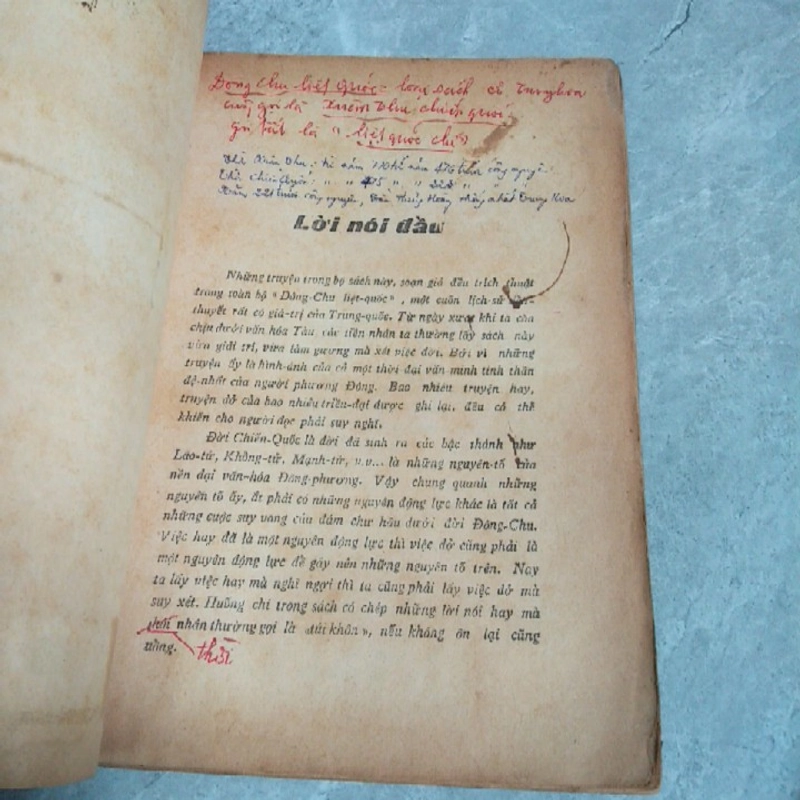 Đông Chu liệt quốc - 
Xuân thu chiến quốc
gọi tắt là "liệt quốc chí"
Thời Xuân Thu: từ năm 770 tế năm 476 trước công nguyên
Thời Chiến Quốc: " " 475 " " 221 " "
Năm 221 trước công nguyên, Tần Thủy Hoàng thống nhất Trung Hoa
Lời nói đầu
Những truyện trong bộ sách này, soạn giả đều trích thuật
trong toàn bộ "Đông-Chu liệt-quốc", một cuốn lịch-sử
thuyết rất có giá-trị của Trung-quốc. Từ ngày xưa khi ta còn
chịu dưới văn hóa Tàu, các tiền nhân ta thường lấy sách này
vừa giải trí, vừa làm gương mà xét việc đời. Bởi vì những
truyện ấy là hình-ảnh của cả một thời đại văn-minh tinh thần
đệ-nhất của người phương Đông. Bao nhiêu truyện hay,
truyện dở của bao nhiêu triều-đại được ghi lại, đều có thể
khiến cho người đọc phải suy nghĩ.
Đời Chiến-Quốc là đời đã sinh ra các bậc thánh như
Lão-tử, Khổng-tử, Mạnh-tử, v.v... là những nguyên-tố của
nền đại văn-hóa Đông-phương. Vậy chung quanh những
nguyên tố ấy, ắt phải có những nguyên động lực khác là tất cả
những cuộc suy vong của đám chư hầu dưới đời Đông-Chu.
Việc hay đã là một nguyên động lực thì việc dở cũng phải là
một nguyên động lực để gây nên những nguyên tố trên. Nay
ta lấy việc hay mà nghĩ ngợi thì ta cũng phải lấy việc dở mà
suy xét. Huống chi trong sách có chép những lời nói hay mà
thói nhân thường gọi là «túi khôn», nếu không ôn lại cũng
uổng. thời